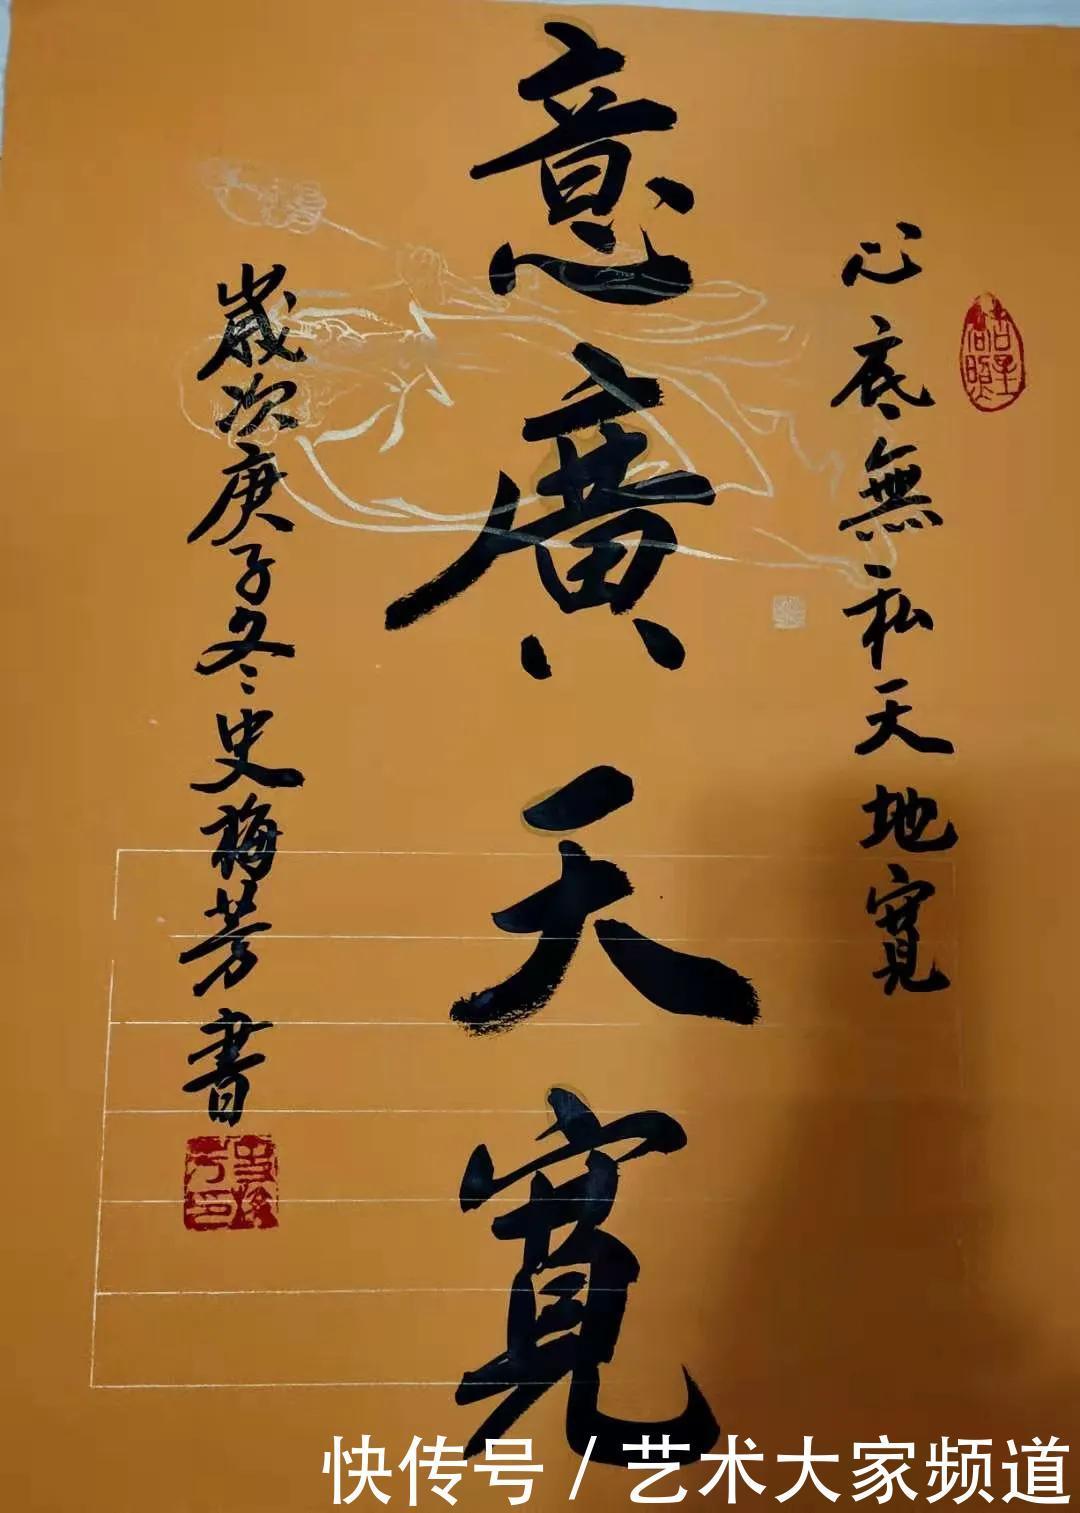 心底無私天地寬
意廣天寬
歲次庚子冬史梅芳書
快传号 / 艺术大家频道